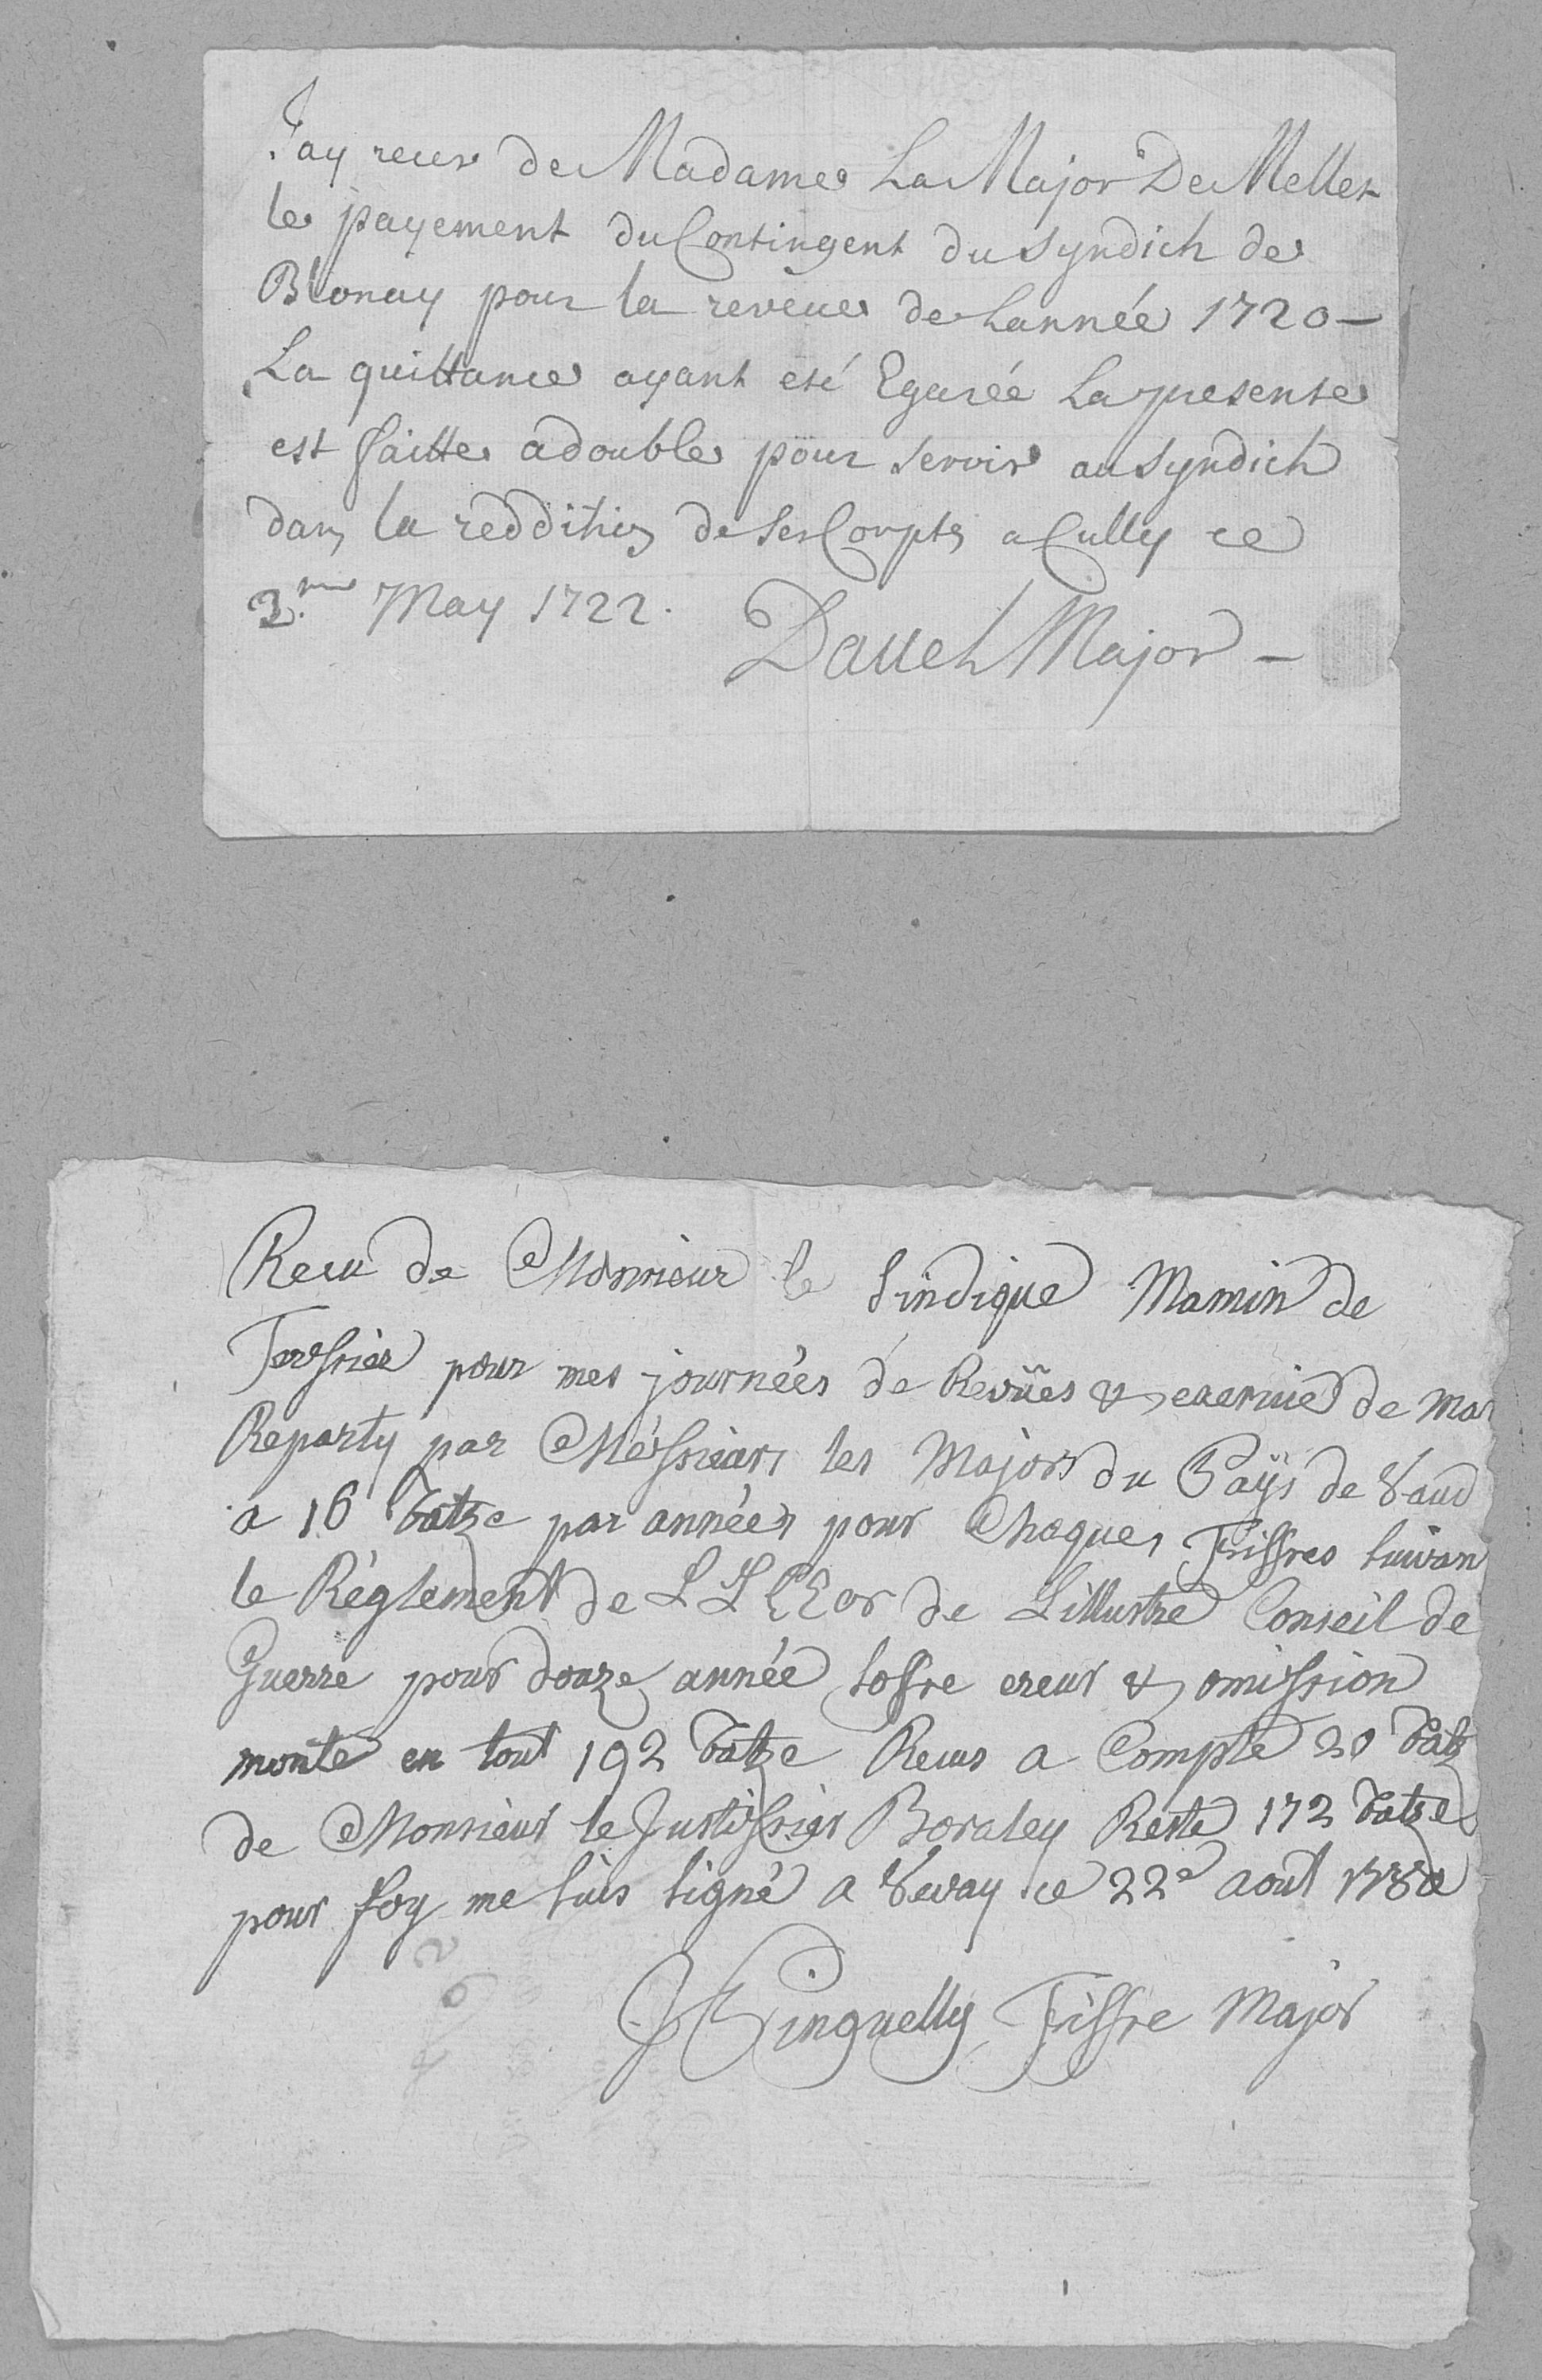 J'ay receu de Madame La Major De Mellet
le payement du Contingent du Syndich de
Blonay pour la reveue de Lannée 1720 –
La quittance ayant eté Egarée La presente
est faitte a double pour servir au Syndich
dans la reddition de ses Compts a Cully ce
3.me May 1722.
Davel Major –
Recu de Monsieur le Sindique Mamin de
pour mes journées de Revües & exercice de
Reparty par Méssieurs les Majors du Païs de Vaud
a 16 batze par année pour Chaque Fiffres suivan
le Réglement de LL EE de Lillustre Conseil de
Guerre pour douze année sofre ereur & omission
monte en tout 192 batze Recus a Compte 20 batz
de Monsieur le Justissier Reste 172 batze
pour foy me suis signé a Vevay ce 22e aout
Pinguelly Fiffre Major